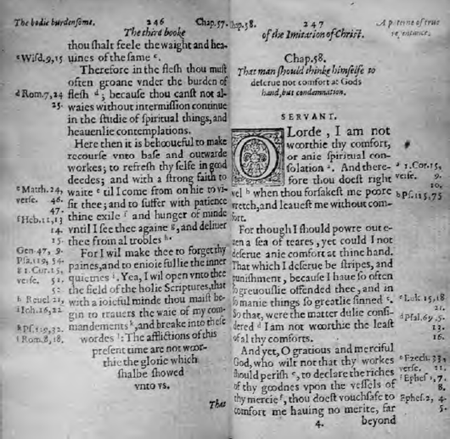 The bodie burdensome.
246
Chap.57.
The third booke
thou shalt feele the waight and hea-
uines of the same c.
c Wisd.9,15
Therefore in the flesh thou must
often groane vnder the burden of
flesh d; because thou canst not al-
d Rom.7,24
25.
waies without intermission continue
in the studie of spiritual things, and
heauenlie contemplations.
Here then it is behooueful to make
recourse vnto base and outwarde
workes; to refresh thy selfe in good
deedes; and with a strong faith to
waite e til I come from on hie to vi-
e Matth.24,
verse. 46.
47.
sit thee; and to suffer with patience
thine exile f and hunger of minde
f Heb.11,13
14.
15.
vntil I see thee againe g, and deliuer
thee from al trobles h.
Gen 47, 9.
For I wil make thee to forget thy
paines, and to enioie fullie the inner
quietnes i. Yea, I wil open vnto thee
i 1. Cor.15,
verse. 51,
52.
the field of the holie Scriptures, that
with a ioieful minde thou maist be-
gin to trauers the waie of my com-
k Reuel.21,
l Ioh.16,22
mandements k, and breake into these
wordes l: The afflictions of this
present time are not woor-
thie the glorie which
shalbe shewed
vnto vs.
Rom.8,18.
That
Chap.58.
247
of the Imitation of Christ.
A paterne of true
repentance.
Chap.58.
That man should thinke himselfe to
deserue not comfort at Gods
hand, but condemnation.
SERVANT.
O Lorde, I am not
woorthie thy comfort,
or anie spiritual con-
solation a. And there-
a 1. Cor.15,
verse. 9.
10.
fore thou doest right
wel b when thou forsakest me poore
b Ps.115,75
wretch, and leauest me without com-
fort.
For though I should powre out e-
uen a sea of teares, yet could I not
deserue anie comfort at thine hand.
That which I deserue be stripes, and
punishment, because I haue so often
so greeuouslie offended thee, and in
so manie things so greatlie sinned c.
c Luk.15,18
21.
So that, were the matter dulie consi-
dered d I am not woorthie the least
d Psal.69,5.
13.
16.
of al thy comforts.
And yet, O gratious and merciful
God, who wilt not that thy workes
e Ezech.33,
verse. 11.
should perish e, to declare the riches
of thy goodnes vpon the vessels of
f Ephes.1,7.
8.
thy mercie f, thou doest vouchsafe to
Ephes.2, 4.
5.
comfort me hauing no merite, far
4.
beyond